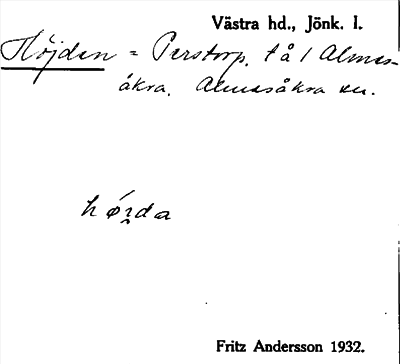 Västra hd., Jönk. l.
Höjden = Perstorp, tå 1 Almes-
åkra. Almesåkra sn.
hó̱i̯da
Fritz Andersson 1932.